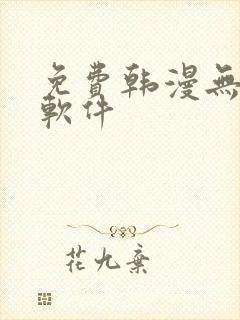 免費韩漫無
軟件
花九棄